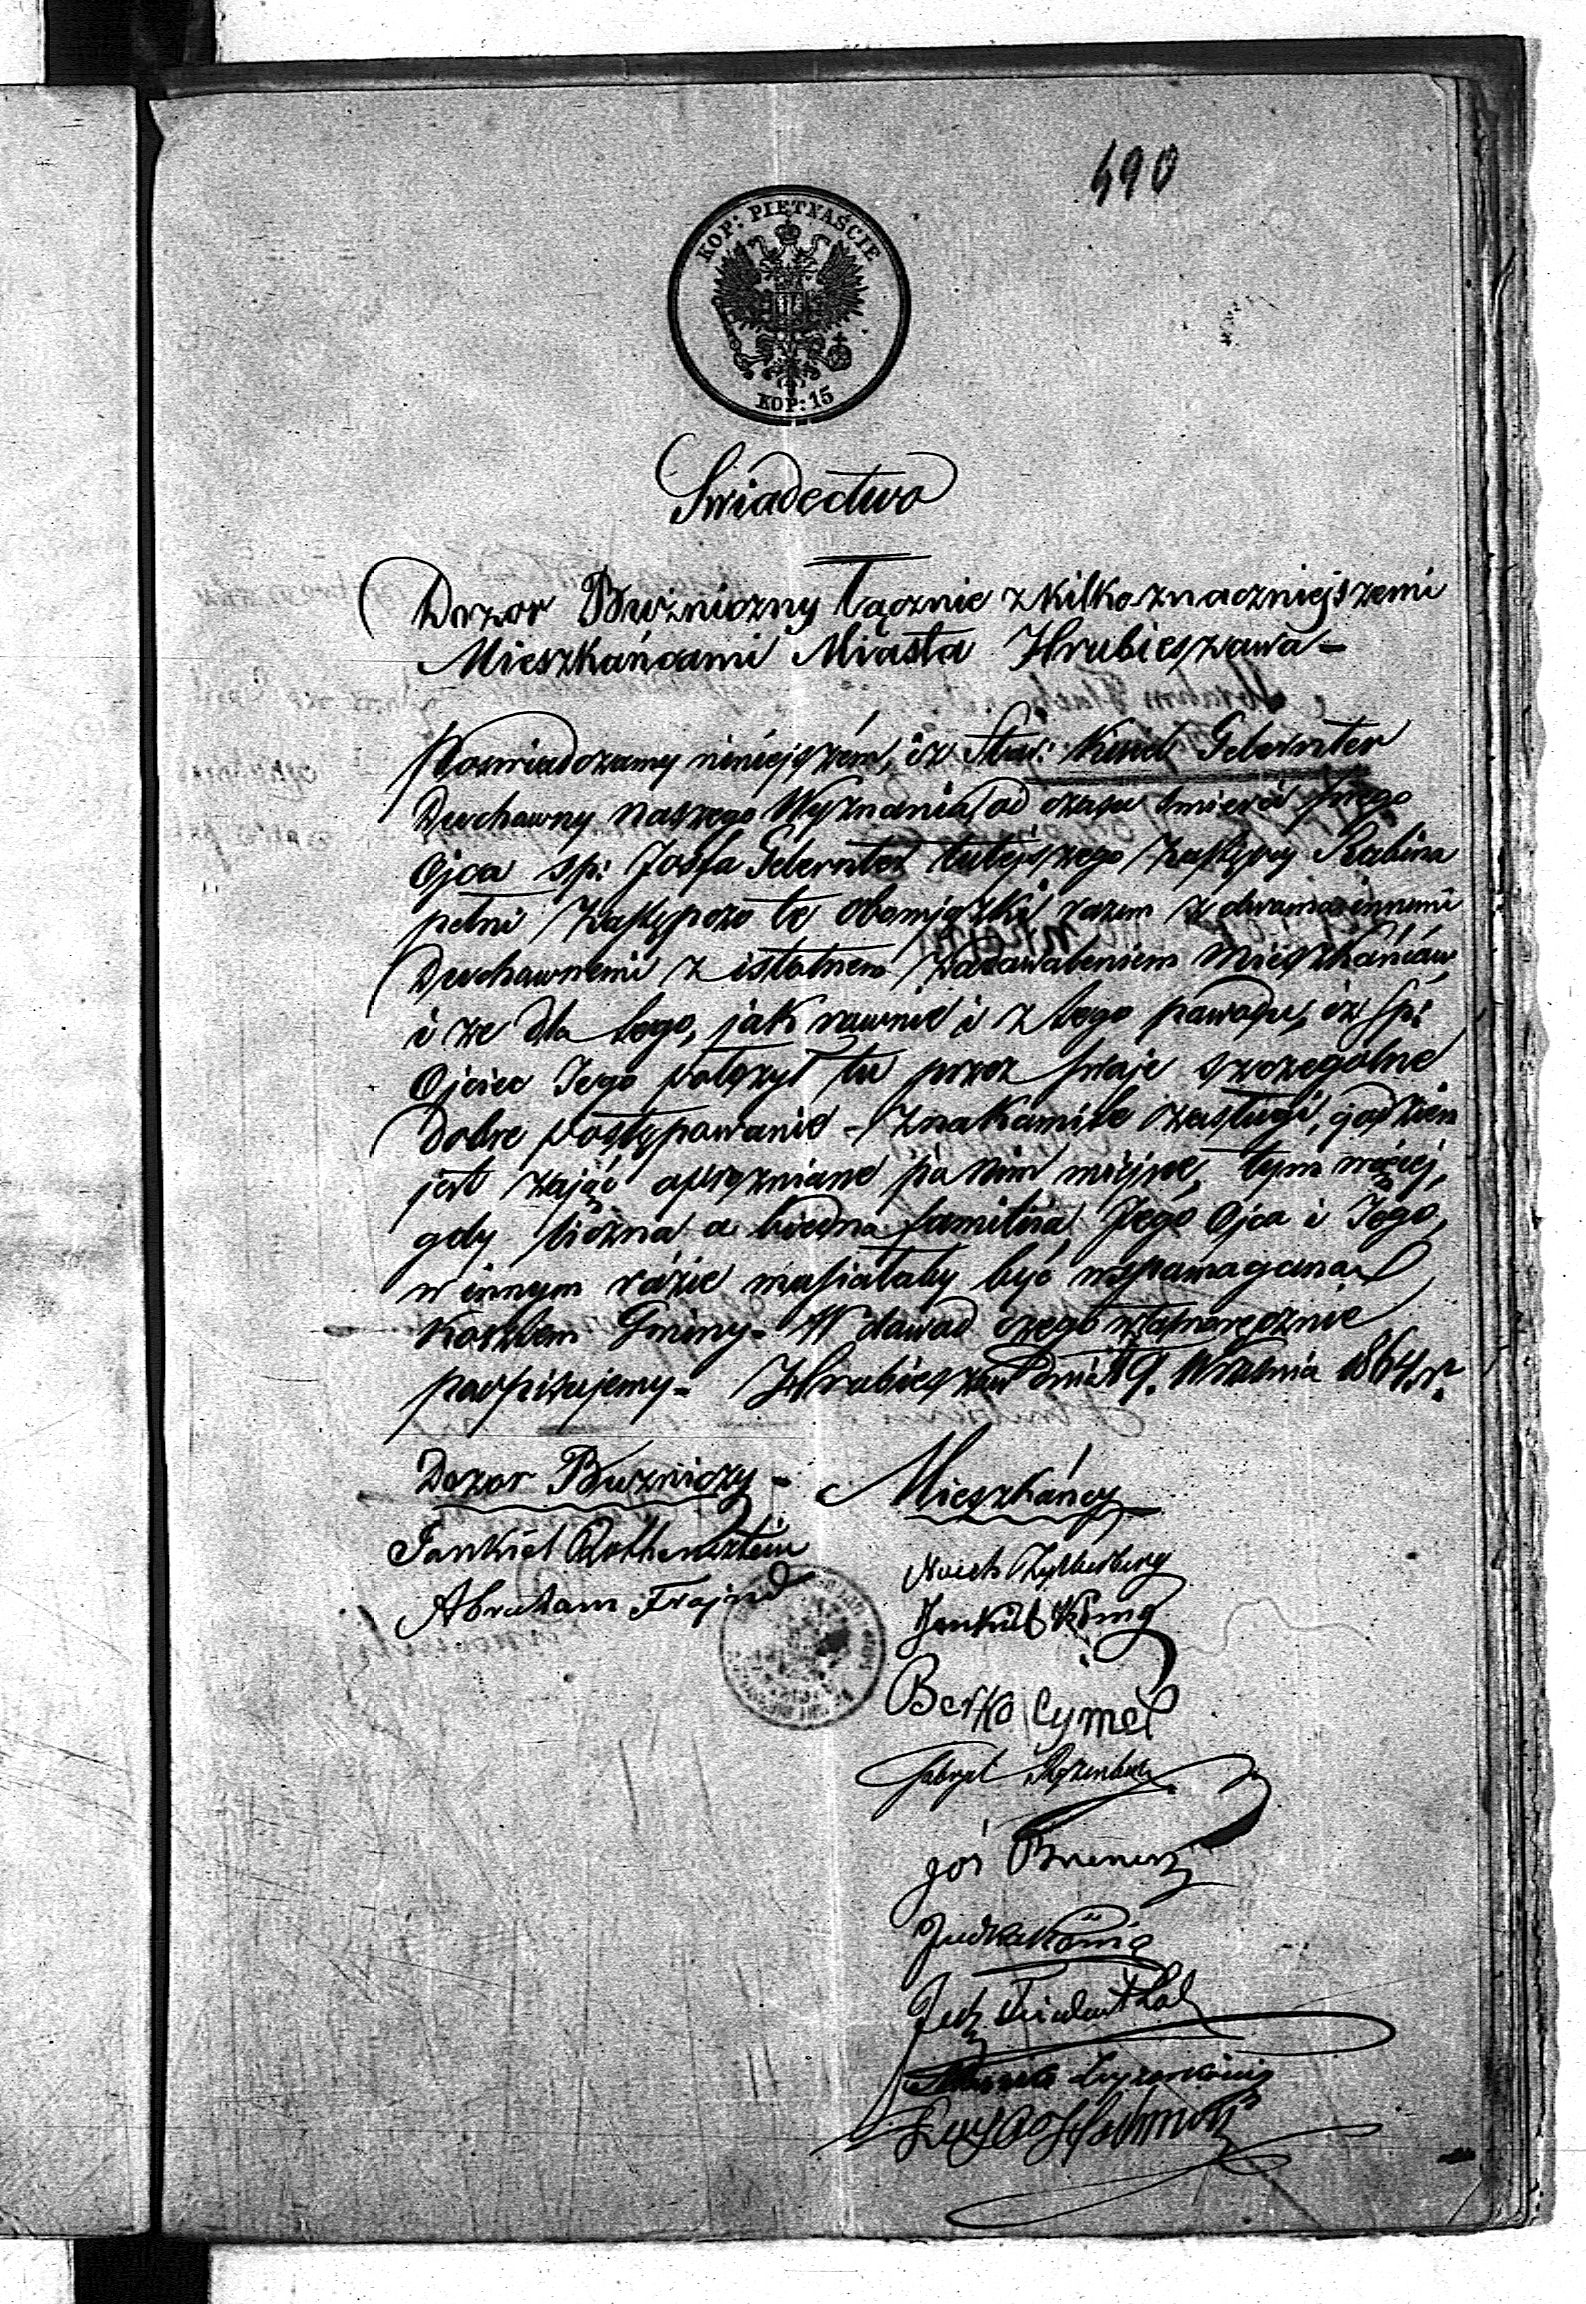 490
KOP: PIĘTNAŚCIE
KOP: 15
Swiadectwo
Dozor Bużniczny łącznie z kilko znaczniejszemi
Mieszkańcami Miasta Hrubieszowa -
Poswiadczamy niniejszém, iż Star: Kisel Gebernter
Duchowny naszego Wyznania, od czasu smierci swego
Ojca sp: Josfa Gebernter tutejszego Zastępcy Rabina
pełni Zastępczo te obowiązki razem z dwoma innemi
Duchownemi z istotnem zadawaleniem Mieszkańców,
i że dla tego, jak rawnie i z tego powodu, iż sp:
Ojciec Jego położył tu przez swoje szczegolne
dobre postępowanie - znakomite zasługi, godzien
jest zająć opuszniane po nim miejsce, tym więcej,
gdy liczna a biedna familia Jego Ojca i Jego,
w innym razie musiałaby być wspomagana
Kosztem Gminy - W dowod czego własnoręcznie
podpisujemy - Hrubieszow dnia 19. Wrzesnia 1864 r.
Dozor Bużniczy -
Mieszkáncy
Jankiel Rothensztein
Abraham Frajnd
Zylberberg
Jankiel König
Berko Cymel
Gabryel
Jos Brener
Judka König